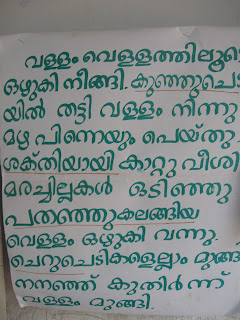 വള്ളം വെള്ളത്തിലൂടെ
ഒഴുകി നീങ്ങി. കുഞ്ഞുചെ
യിൽ തട്ടി വള്ളം നിന്നു
മഴ പിന്നെയും പെയ്തു.
ശക്തിയായി കാറ്റു വീശി
മരച്ചില്ലകൾ ഒടിഞ്ഞു
പതഞ്ഞുകലങ്ങിയ
വെള്ളം ഒഴുകി വന്നു.
ചെറുചെടികളെല്ലാം മുങ്ങി
നനഞ്ഞ് കുതിർന്ന്
വള്ളം മുങ്ങി.